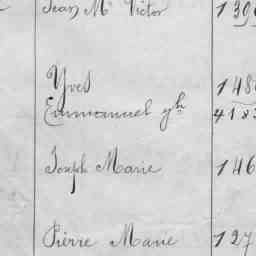 Jean Mie Victor 139
Yves 148
Emmanuel yh 4183
Joseph Marie 146
Pierre Marie 127